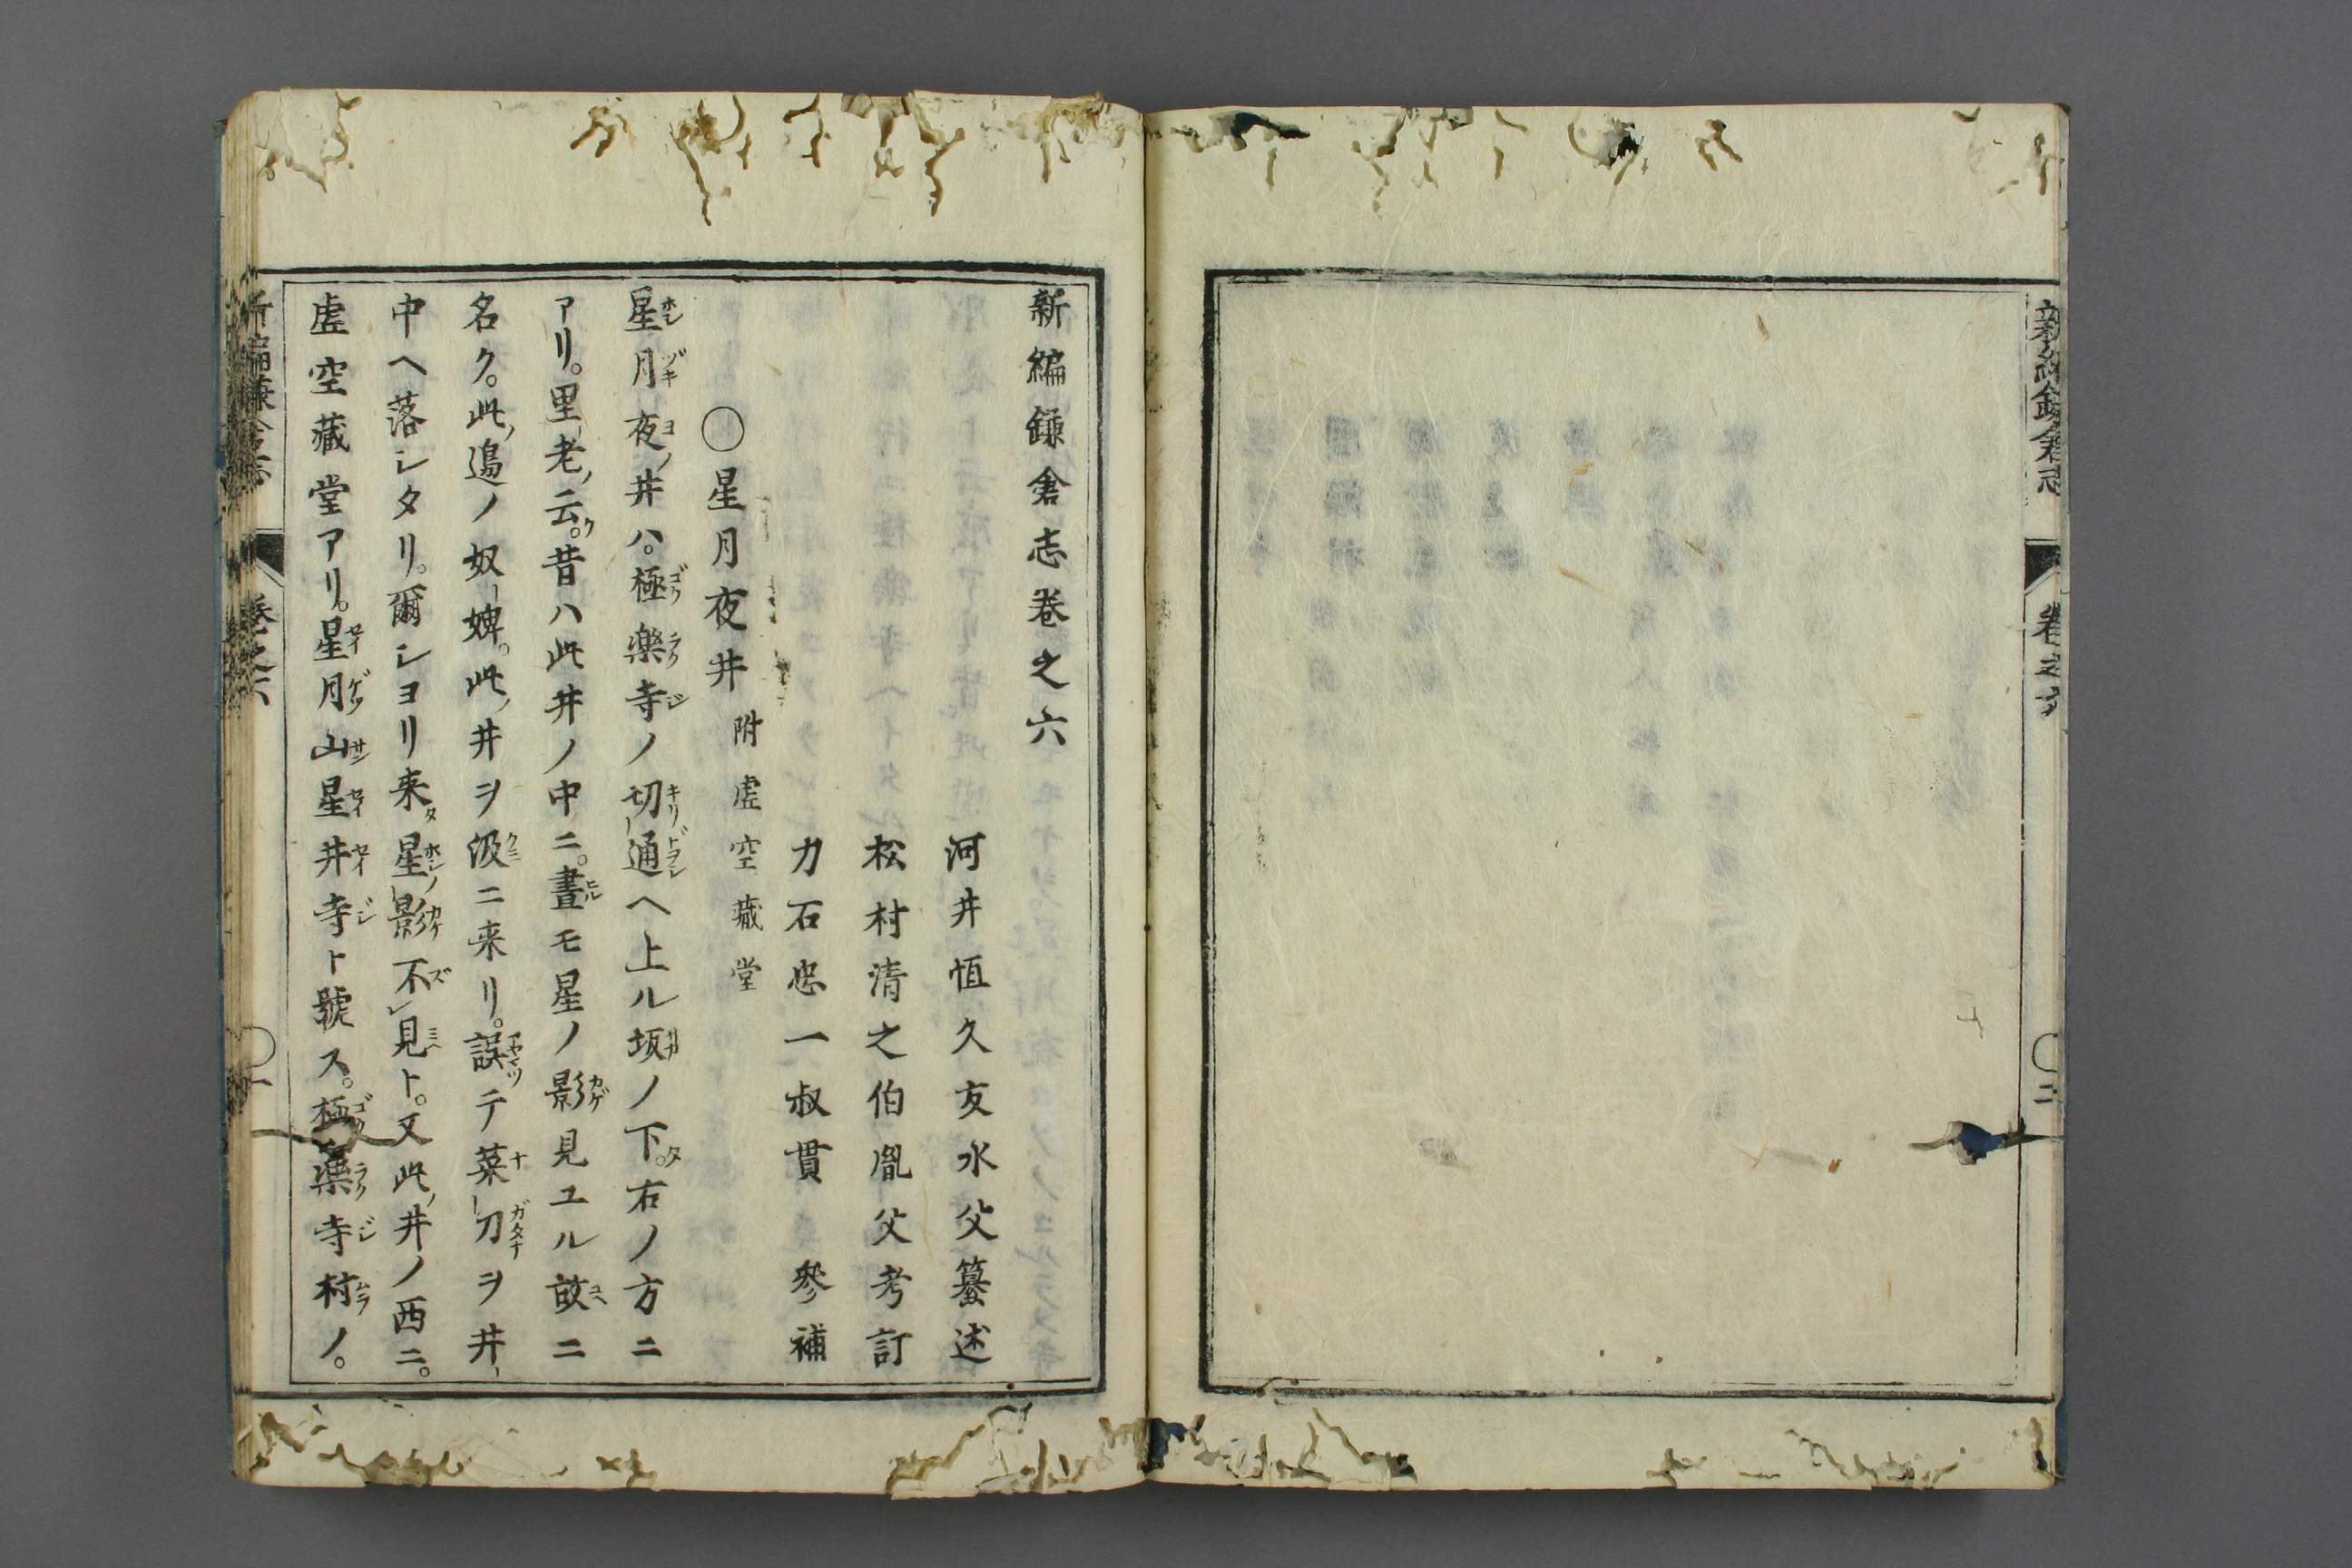 新編鎌倉志
卷之六
〇二
新編鎌倉志卷之六
河井恒久友水父纂述
松村清之伯胤父考訂
力石忠一叔貫參補
〇星月夜井附虚空藏堂
星月夜ノ井ハ。極樂寺ノ切通ヘ上ル坂ノ下タ。右ノ方ニ
アリ。里老ノ云ク。昔ハ此井ノ中ニ。晝モ星ノ影見ユル故ニ
名ク。此ノ邉ノ奴婢。此ノ井ヲ汲ニ来リ。誤テ菜刀ヲ井
中ヘ落シタリ。爾シヨリ来タ星ノ影不レ見ト。又此ノ井ノ西ニ。
虚空藏堂アリ。星月山星井寺ト號ス。極樂寺村ノ。
新編鎌倉志
卷之六